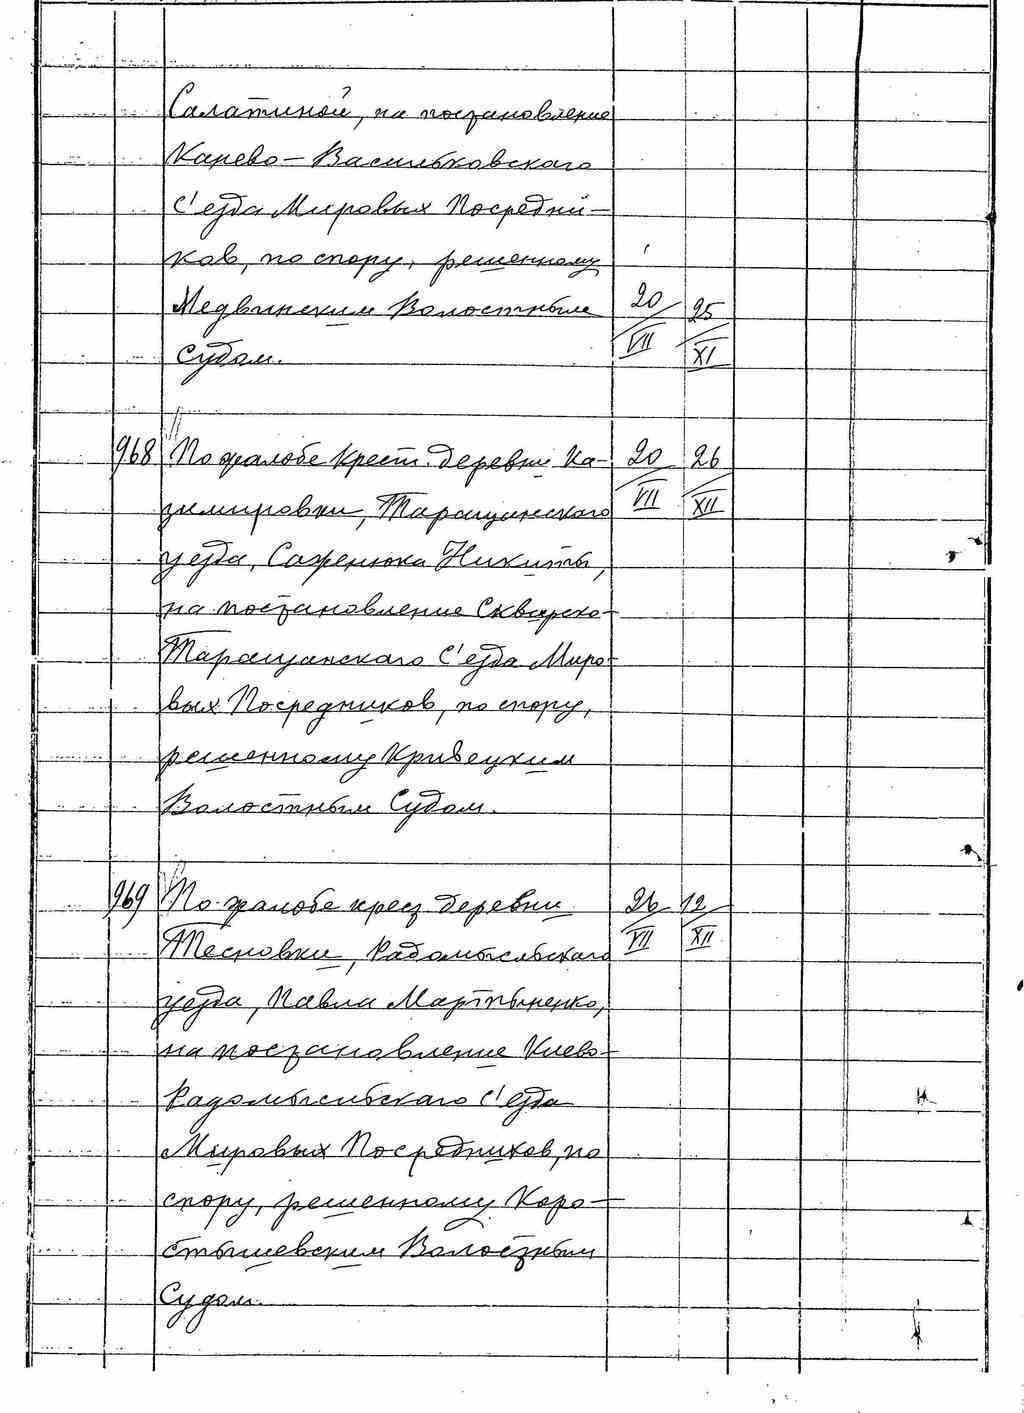 Салатиной, на постановление
Канево-Васильковского
С'езда Мировых Посредни-
ков, по спору, решенному
Медвинским Волостным 20/VII 25/XI
Судом.
968 По жалобе крест. деревни Ка- 20/VII 26/XII
зимировки, Таращанского
уезда, Саженюка Никиты,
на постановление Сквирско-
Таращанского С'езда Миро-
вых Посредников, по спору,
решенному Кривецким
Волостным Судом.
969 По жалобе крест. деревни 26/VII 12/XII
Тесновки, Радомысльского
уезда, Павла Мартыненко,
на постановление Киево-
Радомысльского С'езда
Мировых Посредников, по
спору, решенному Коро-
стышевским Волостным
Судом.